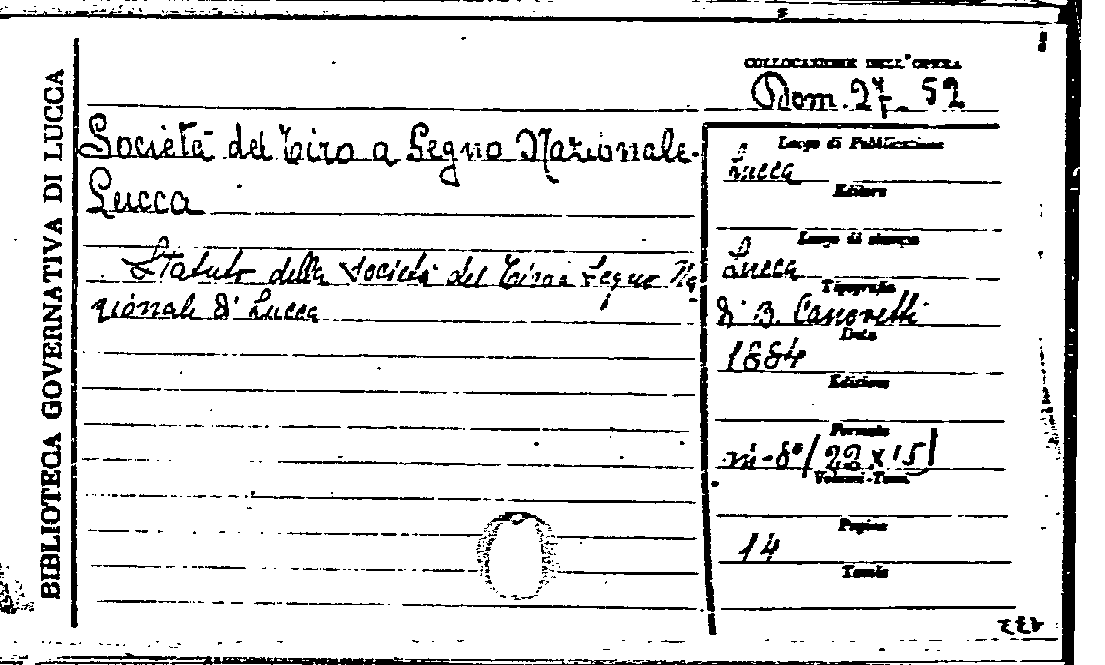 BIBLIOTECA GOVERNATIVA DI LUCCA
COLLOCAZIONE DELL'OPERA
Bom. 27. 52
Società del Tiro a Segno Nazionale.
Lucca
Statuto della Società del Tiro a Segno Na
zionale di Lucca
Luogo di Pubblicazione
Lucca
Editore
Luogo di stampa
Lucca
Tipografia
di B. Canovetti
Data
1884
Edizione
Formato
in-8° (22 x 15)
Volumi-Tomi
Pagine
14
Tavole